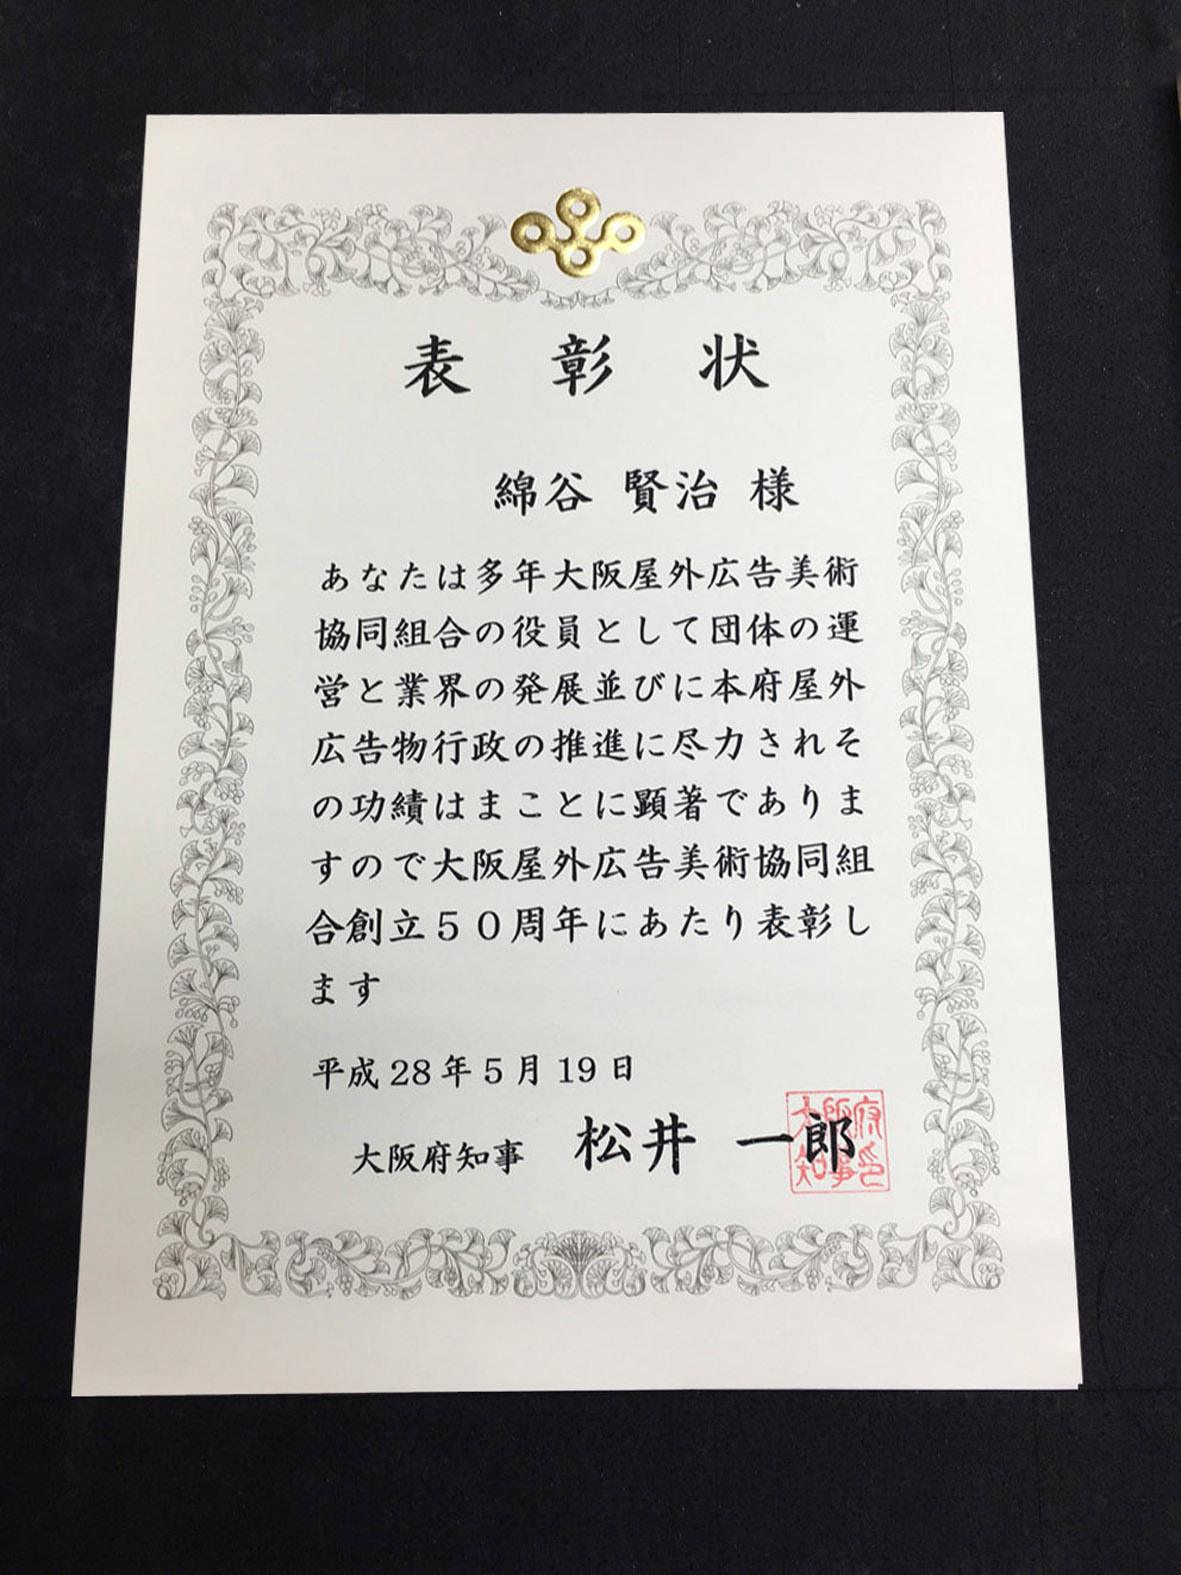 表彰状
綿谷 賢治 様
あなたは多年大阪屋外広告美術
協同組合の役員として団体の運
営と業界の発展並びに本府屋外
広告物行政の推進に尽力されそ
の功績はまことに顕著でありま
すので大阪屋外広告美術協同組
合創立50周年にあたり表彰し
ます
平成28年5月19日
大阪府知事 松井 一郎
大阪府
知事印